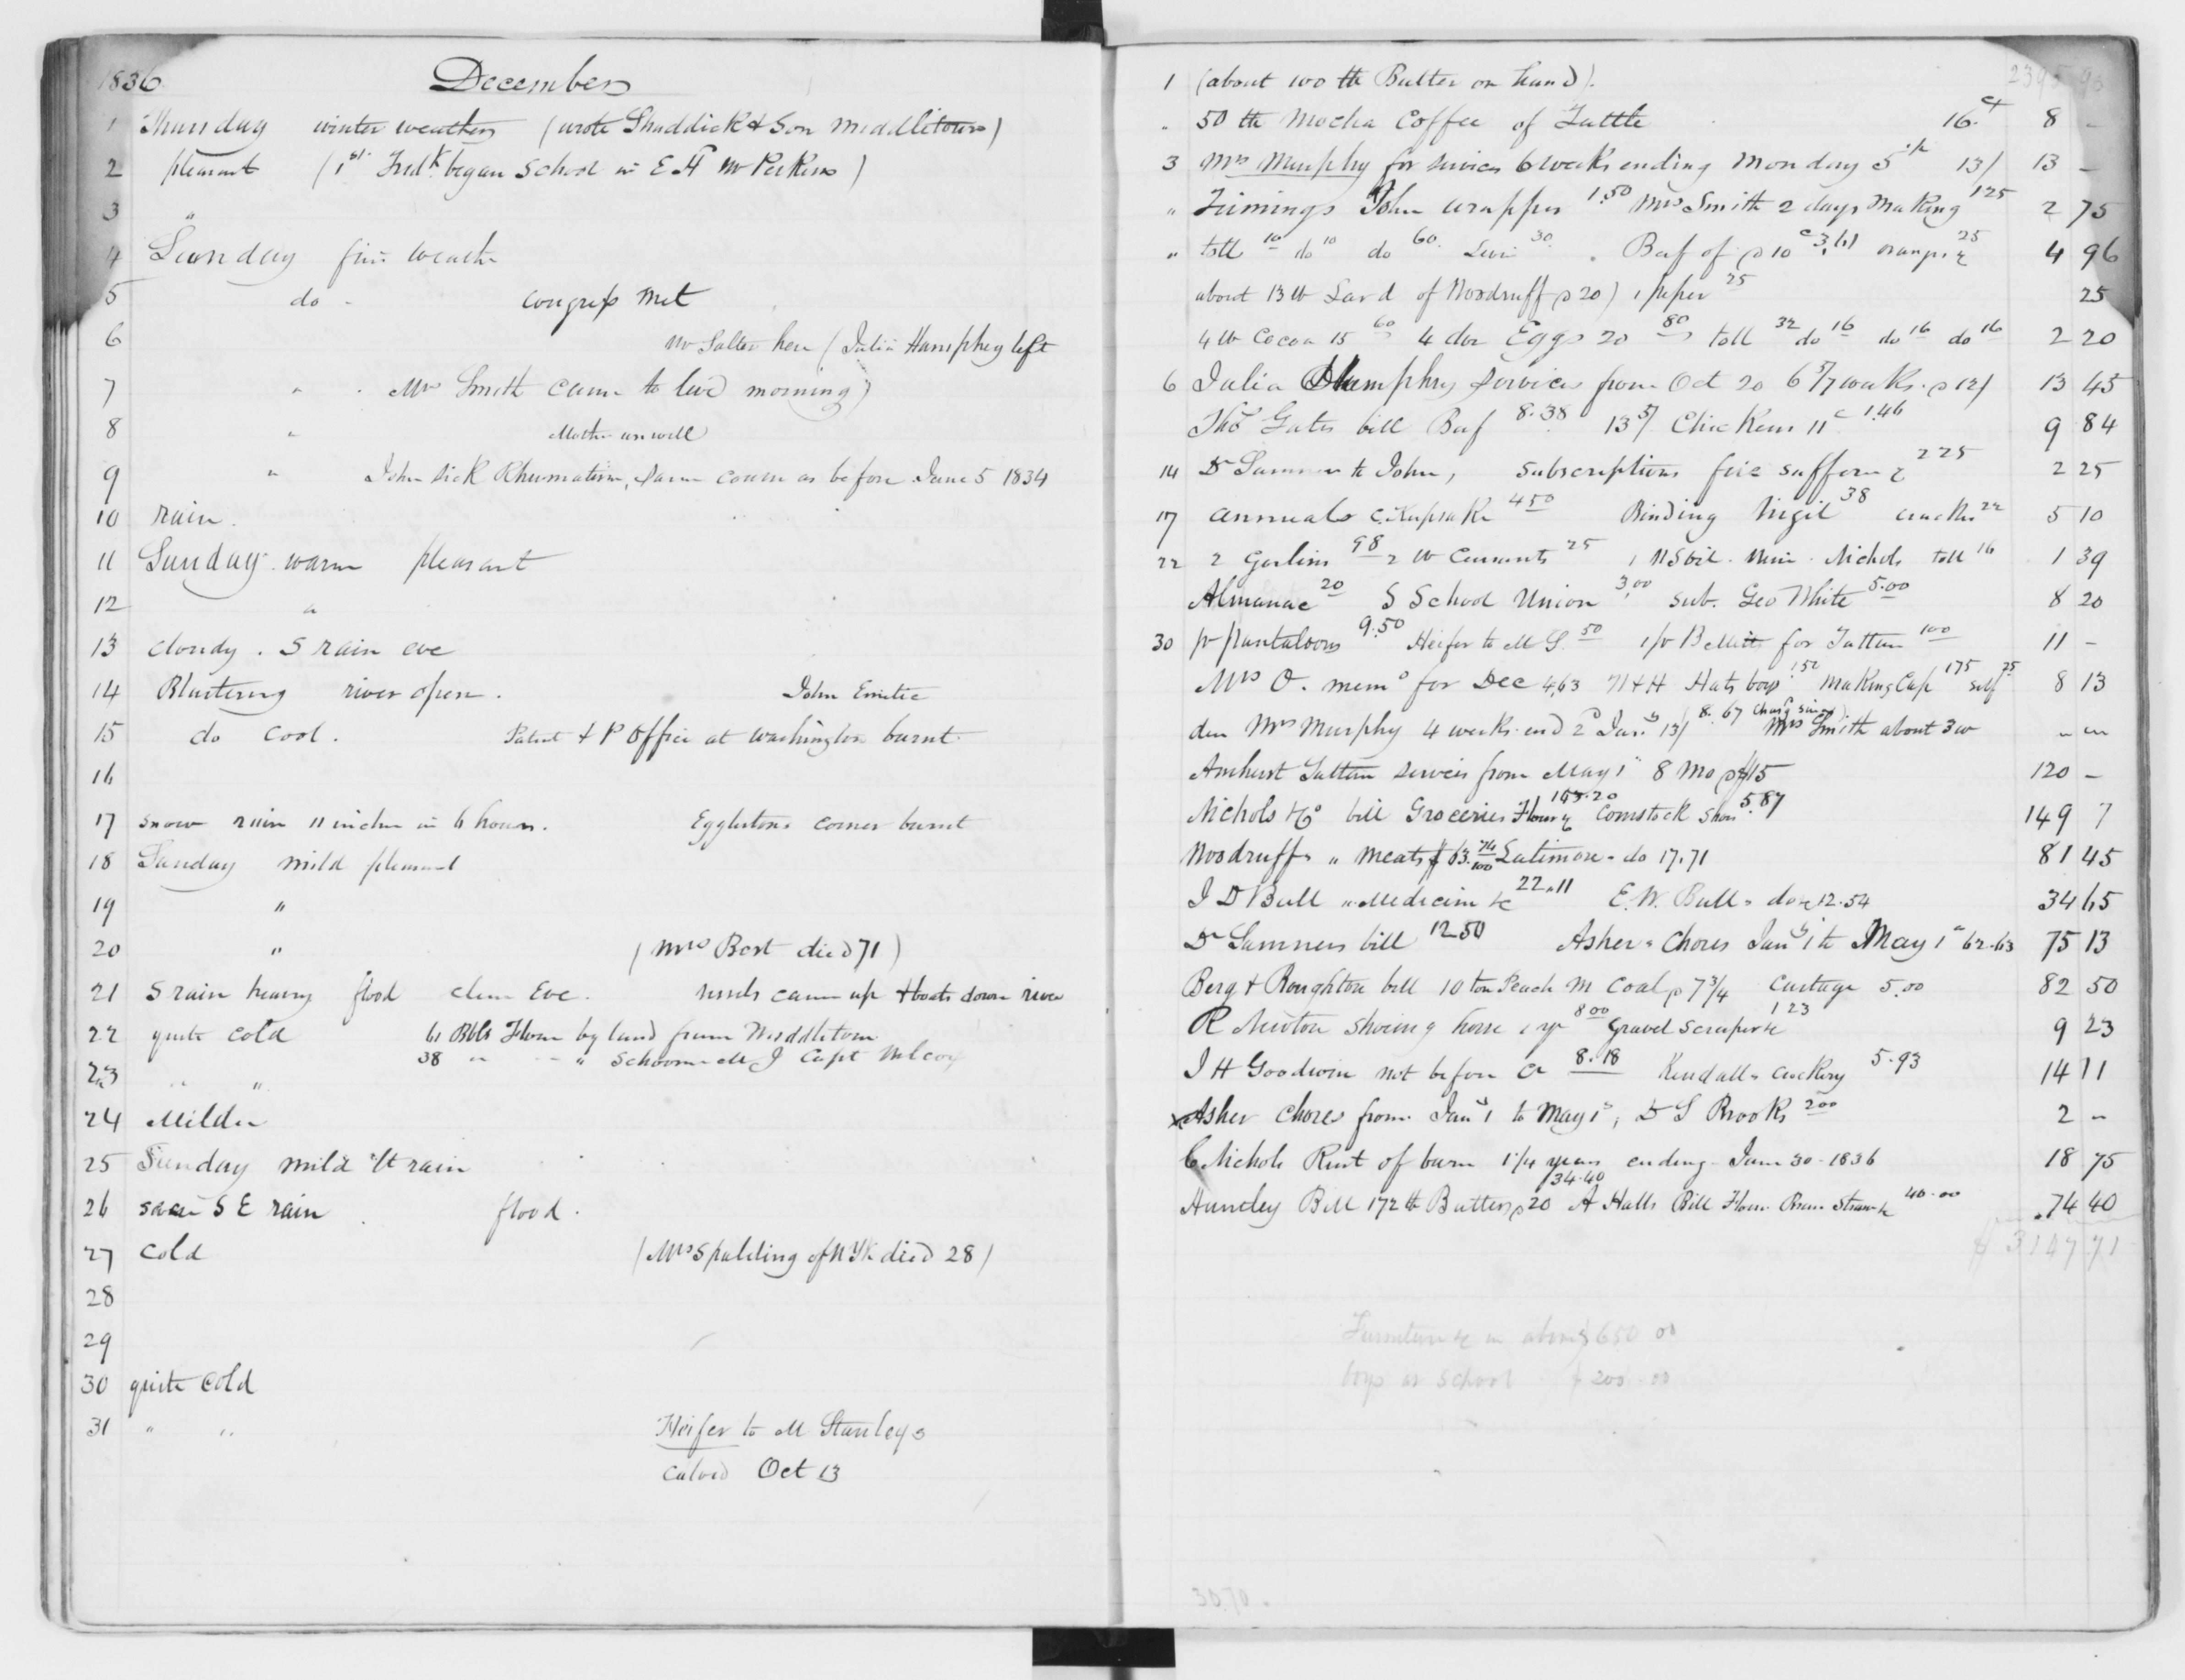 1836 December
1 Thursday winter weather (wrote Shaddick & Son Middletown)
2 pleasant (1st Fredk began School in E H Mr Perkins)
3 "
4 Sunday fine weath
5 do - congress met
6 Mr Salter here (Julia Humphrey left
7 " Mrs Smith came to live morning)
8 " Mother unwell
9 " John sick Rhumatism, same course as before June 5 1834
10 rain.
11 Sunday warm pleasant
12 "
13 cloudy. S rain eve
14 Blustering river open. John Emetic
15 do cool. Patent & P Office at Washington burnt
16
17 snow rain 11 inches in 6 hours. Egglestons corner burnt
18 Sunday mild pleasant
19 "
20 " (Mrs Bort died 71)
21 S rain heavy flood clear Eve. vessels came up & boats down river
22 quite cold 61 Bbls Flour by land from Middletown
38 " " " Schooner M J Capt Wilcox
23 " "
24 Milder
25 Sunday mild lt rain
26 S E rain flood.
27 Cold (Mrs Spalding of N Yk died 28)
28
29
30 quite cold
31 " " Heifer to M Stanleys
calved Oct 13
2395 93
1 (about 100 lb Butter on hand).
" 50 lb Mocha Coffee of Tuttle 16 ct 8 -
3 Mrs Murphy for services 6 weeks ending Monday 5th 13/ 13 -
" Trimings John wrapper 1.50 Mrs Smith 2 days Making 125 2 75
" toll 10 do 10 do 60. Levi 30. Beef of p 10 c 3.61 oranges &c 25 4 96
about 13 lb Lard of Woodruff p 20) 1 paper 25 25
4 lb Cocoa 15 60 4 doz Eggs 20 80 toll 32 do 16 do 16 do 16 2 20
6 Julia Humphrey services from Oct 20 6 5/7 weeks p 12/ 13 45
Thos Gates bill Beef 8.38 13 5/ Chickens 11 c 1.46 9 84
14 Dr Sumner to John, subscriptions fire sufferers &c 225 2 25
17 annuals C. Keepsake 450 Binding Virgil 38 22 5 10
22 2 98 2 lb Currants 25 1 Nichols toll 16 1 39
Almanac 20 S School Union 3.00 sub. Geo White 5.00 8 20
30 pr pantaloons 9.50 Heifer to M S. 50 1 pr for Tattun 100 11 -
Mrs O. memo for Dec 463 N & H Hats boys 1.52 Making Cap 175 self 75 8 13
due Mrs Murphy 4 weeks end 2d Jany 13/ 8.67 charg since) Mrs Smith about 3 w " "
Amherst Tattun services from May 1st 8 Mo p $15 120 -
Nichols & Co bill Groceries Flour &c 143.20 Comstock Shoes 5.87 149 7
Woodruffs " meats $63.74/100 Latimore " do 17.71 81 45
J D Bull " Medicine &c 22.11 E.W. Bull " do &c 12.54 34 65
Dr Sumners bill 12 50 Asher " Chores Jany 1 to May 1st 62.63 75 13
Berg & Boughton bill 10 ton Peach M Coal p 7 3/4 Cartage 5.00 82 50
R Newton shoeing horse 1 yr 8 00 Gravel Scraper &c 1 23 9 23
J H Goodwin not before Cr 8.18 Kendalls Crockery 5.93 14 11
x Asher chores from Jany 1 to May 1st, D S Brooks 200 2 -
C Nichols Rent of barn 1 1/4 years ending June 30 - 1836 18 75
Huntley Bill 172 lb Butter p 20 34.40 A Halls Bill Flour Bran Straw &c 40.00 74 40
$ 3147 71
Furniture &c in above $650 00
boys at school $200.00
30.70.